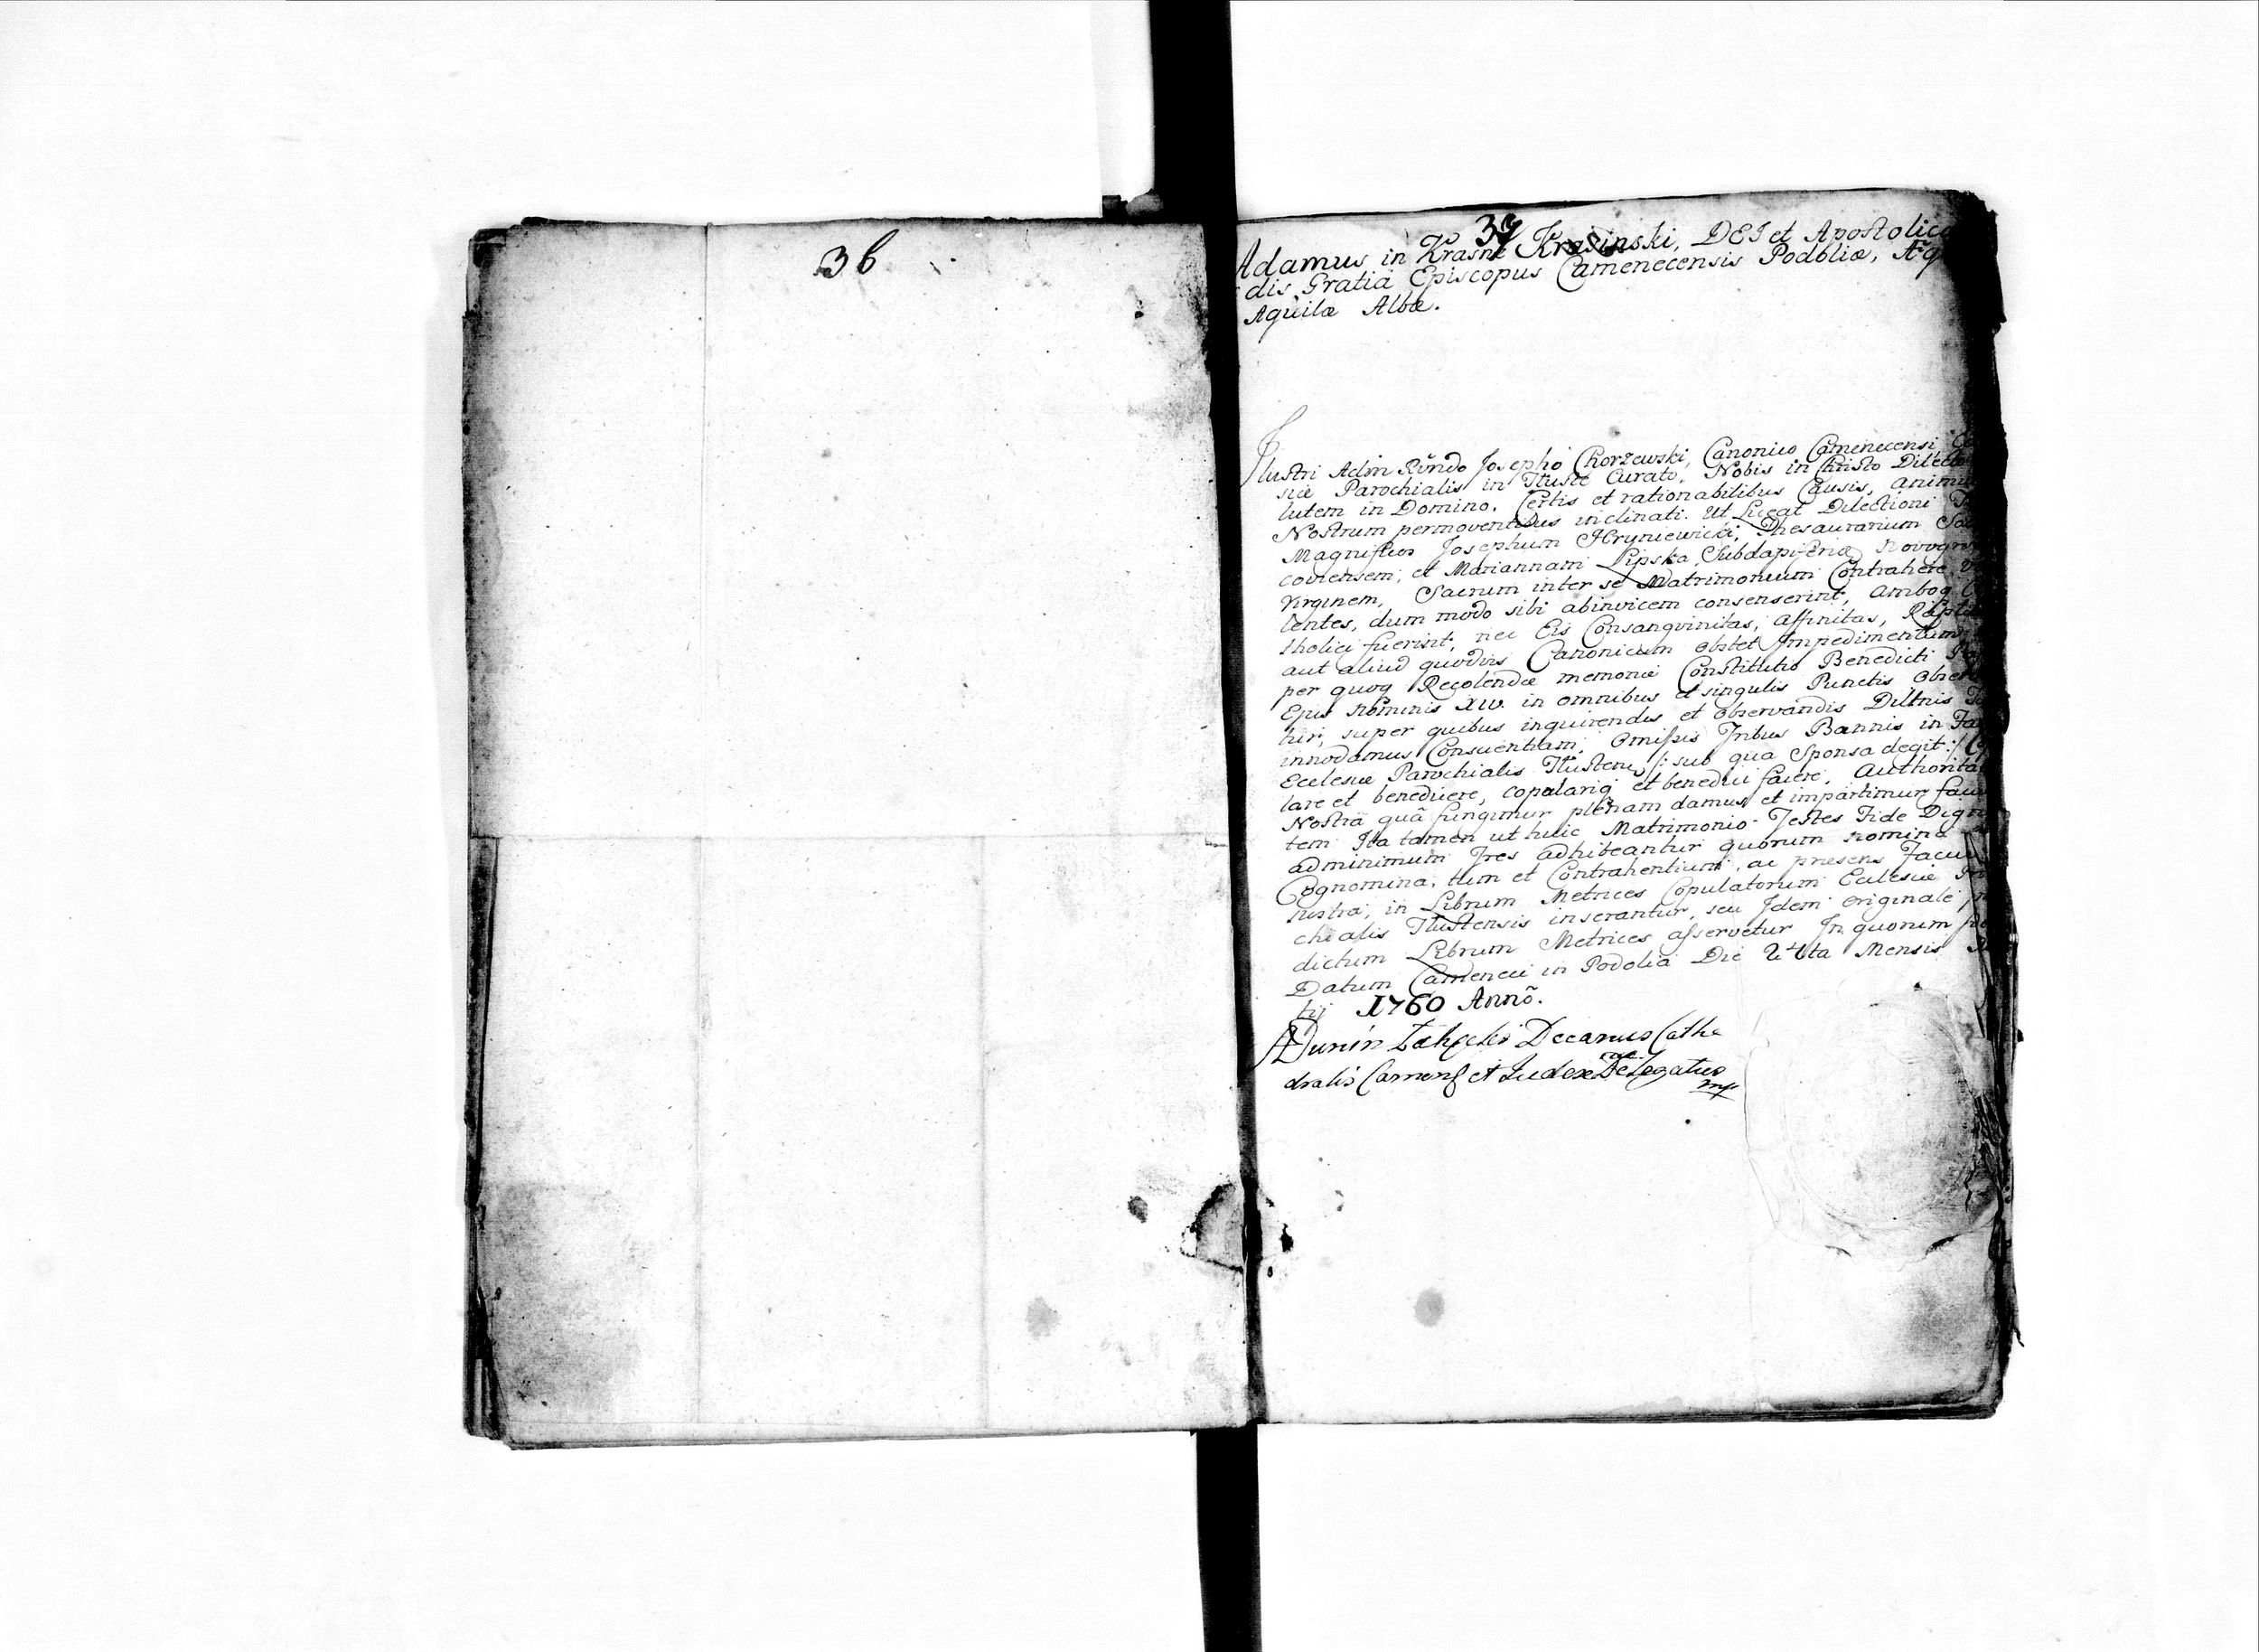 36
39
Adamus in Krasne Krasinski, DEI et Apostolica
dis Gratiâ Episcopus Camenecensis Podoliæ,
Aquilæ Albæ.
Illustri Adm Rñdo Josepho Chorzewski, Canonico Camenecensi
siæ Parochialis in Tłuste Curato, Nobis in Christo Dilecto
lutem in Domino. Certis et rationabilibus Causis, animum
Nostrum permoventibus inclinati. Ut Liceat Dilectioni
Magnificos Josephum Hryniewicki, Thesaurarium
coviensem, et Mariannam Lipska, Subdapiferiæ
Virginem, Sacrum inter se Matrimonium Contrahere,
lentes, dum modo sibi abinvicem consenserint, amboq
tholici fuerint, nec Eis Consanquinitas, affinitas,
aut aliud quodvis Canonicum obstet Impedimentum,
per quoq Recolendæ memoriæ Constitutio Benedicti
Ejus Nominis XIV. in omnibus et singulis Punctis
tur, super quibus inquirendis et observandis Diltnis
innodamus Consuentiam, Omissis Tribus Bannis in
Ecclesiæ Parochialis Tłustens /: sub qua Sponsa degit :/
lare et benedicere, copalariq et benedici facere, Authorita
Nostrâ quâ fungimur plenam damus et impartimur
tem Ita tamen ut huic Matrimonio Testes Fide
adminimum Tres adhibeantur quorum Nomina
Cognomina, tum et Contrahentium, ac præsens
nostra, in Librum Metrices Copulatorum Ecclesiæ
chialis Tłustensis inserantur, seu Idem originale
dictum Librum Metrices asservetur In quorum
Datum Cameneci in Podolia Die Mensis
tij 1760 Annõ.
ADunin Decanus Cathe
dralis Camens et Judex Delegatus
mp